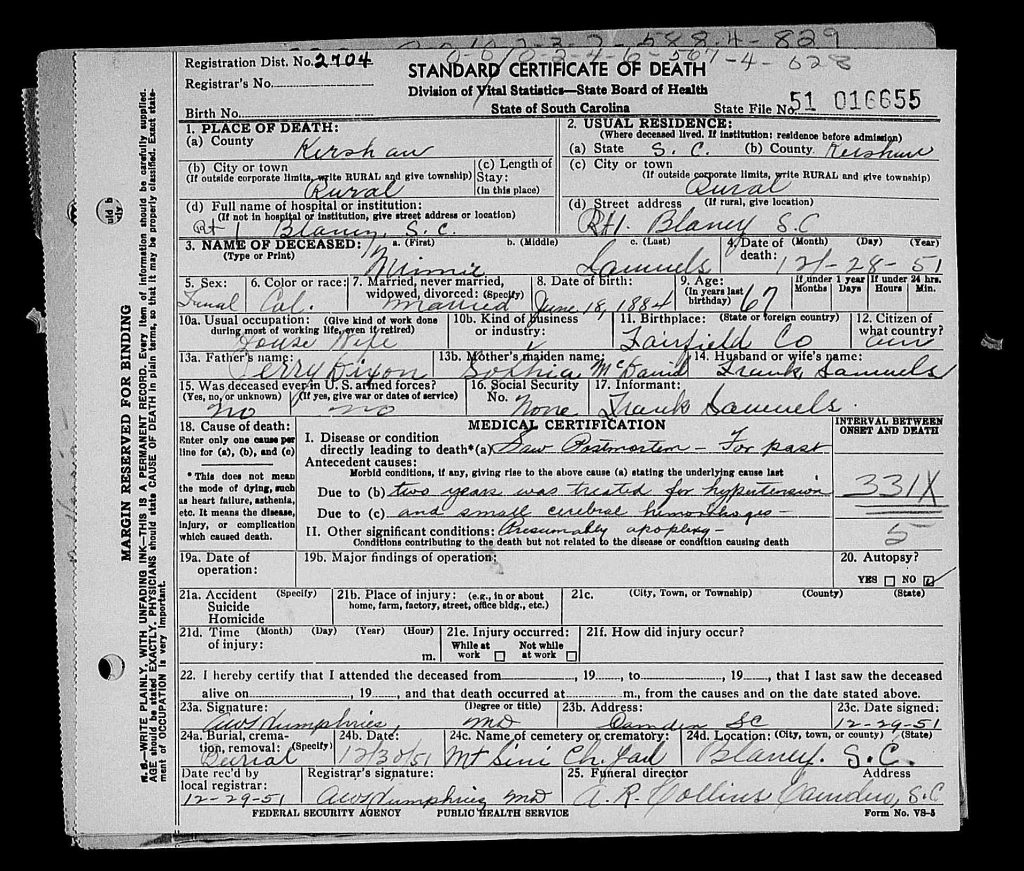 0-0/0-2-3-2-588.4-829
0-0/0-2-4-6-567-4-028
Registration Dist. No. 2704
STANDARD CERTIFICATE OF DEATH
Registrar's No.
Division of Vital Statistics—State Board of Health
Birth No.
State of South Carolina
State File No. 51 016655
1. PLACE OF DEATH:
(a) County
Kershaw
2. USUAL RESIDENCE:
(Where deceased lived. If institution: residence before admission)
(a) State S. C. (b) County Kershaw
(b) City or town
(If outside corporate limits, write RURAL and give township)
Rural
(c) Length of
Stay:
(in this place)
(c) City or town
(If outside corporate limits, write RURAL and give township)
Rural
(d) Full name of hospital or institution:
(If not in hospital or institution, give street address or location)
Rt 1 Blaney, S. C.
(d) Street address (If rural, give location)
Rt 1. Blaney S.C
3. NAME OF DECEASED: a. (First) b. (Middle) c. (Last)
(Type or Print) Minnie Samuels
4. Date of (Month) (Day) (Year)
death: 12-28-51
5. Sex: 6. Color or race: 7. Married, never married,
widowed, divorced: (Specify)
Col. Married
8. Date of birth:
June 18, 1884
9. Age:
(In years last
birthday) 67
If under 1 year
Months Days
If under 24 hrs.
Hours Min.
10a. Usual occupation: (Give kind of work done
during most of working life, even if retired)
House Wife
10b. Kind of business
or industry:
11. Birthplace: (State or foreign country)
Fairfield Co
12. Citizen of
what country?
13a. Father's name:
Perry Dixon
13b. Mother's maiden name:
Sophia McDaniel
14. Husband or wife's name:
Frank Samuels
15. Was deceased ever in U. S. armed forces?
(Yes, no, or unknown) (If yes, give war or dates of service)
no no
16. Social Security
No. None
17. Informant:
Frank Samuels.
18. Cause of death:
Enter only one cause per
line for (a), (b), and (c)
* This does not mean
the mode of dying, such
as heart failure, asthenia,
etc. It means the disease,
injury, or complication
which caused death.
MEDICAL CERTIFICATION
I. Disease or condition
directly leading to death*(a) Saw Postmortem — For past
Antecedent causes:
Morbid conditions, if any, giving rise to the above cause (a) stating the underlying cause last
Due to (b) two years was treated for hypertension
Due to (c) and small cerebral hemorrhages —
II. Other significant conditions: Presumably apoplexy —
Conditions contributing to the death but not related to the disease or condition causing death
INTERVAL BETWEEN
ONSET AND DEATH
331X
5
19a. Date of
operation:
19b. Major findings of operation:
20. Autopsy?
YES NO
21a. Accident (Specify)
Suicide
Homicide
21b. Place of injury: (e.g., in or about
home, farm, factory, street, office bldg., etc.)
21c. (City, Town, or Township) (County) (State)
21d. Time (Month) (Day) (Year) (Hour)
of injury: m.
21e. Injury occurred:
While at
work
Not while
at work
21f. How did injury occur?
22. I hereby certify that I attended the deceased from , 19 , to , 19 , that I last saw the deceased
alive on , 19 and that death occurred at m., from the causes and on the date stated above.
23a. Signature: (Degree or title)
AWHumphries, MD
23b. Address:
Camden SC
23c. Date signed:
12-29-51
24a. Burial, crema-
tion, removal: (Specify)
Burial
24b. Date:
12/30/51
24c. Name of cemetery or crematory:
Mt Sini Ch. Yad
24d. Location: (City, town, or county) (State)
Blaney. S.C.
Date rec'd by
local registrar:
12-29-51
Registrar's signature:
AWHumphries MD
25. Funeral director Address
A. R. Collins Camden, S.C
FEDERAL SECURITY AGENCY PUBLIC HEALTH SERVICE Form No. VS-5
MARGIN RESERVED FOR BINDING
N. B.—WRITE PLAINLY, WITH UNFADING INK—THIS IS A PERMANENT RECORD. Every item of information should be carefully supplied.
AGE should be stated EXACTLY. PHYSICIANS should state CAUSE OF DEATH in plain terms, so that it may be properly classified. Exact state-
ment of OCCUPATION is very important.